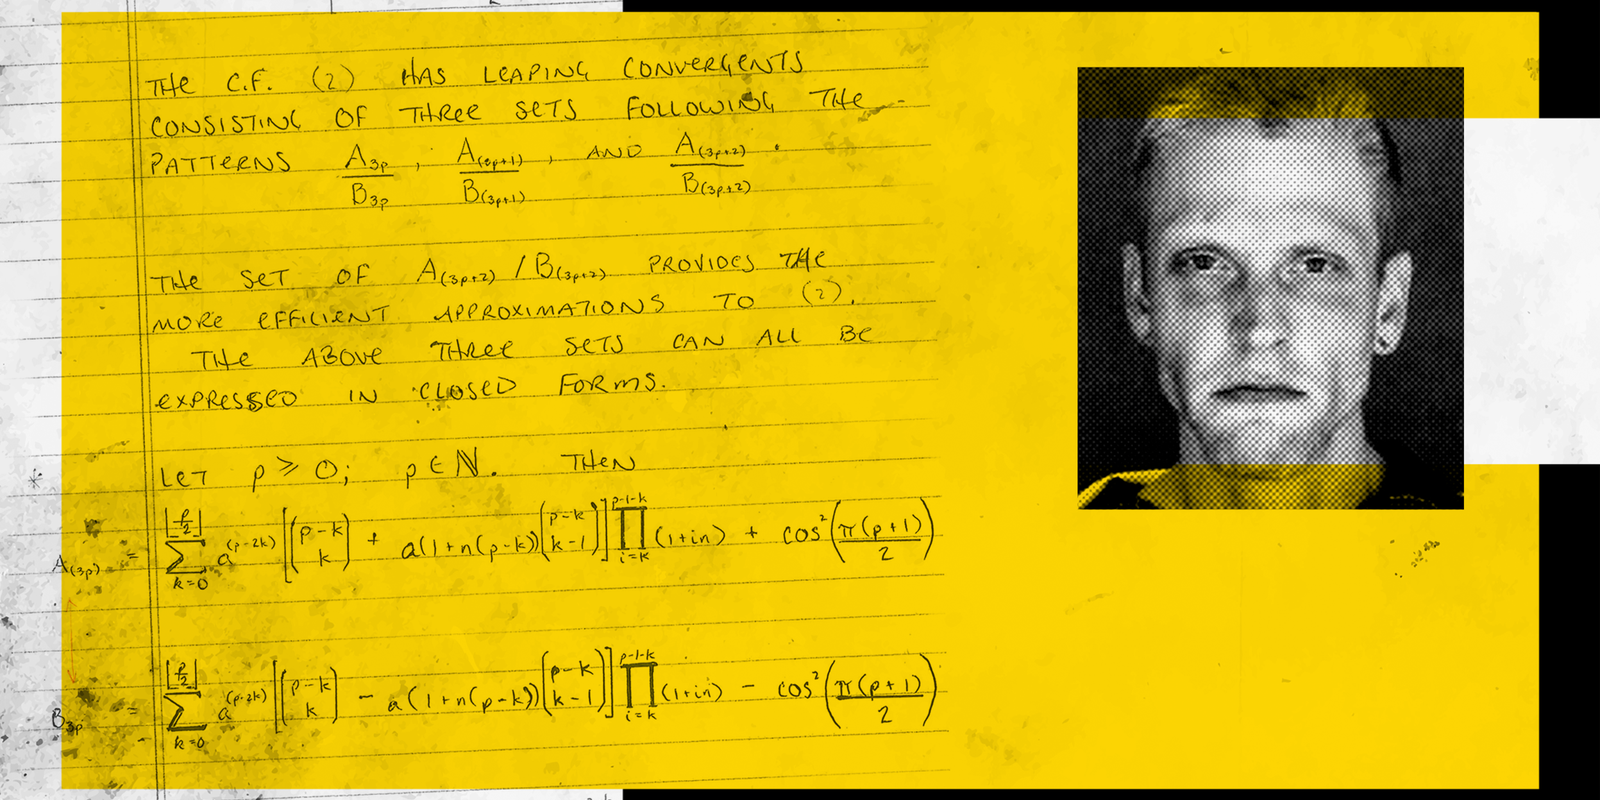 THE C.F. (2) HAS LEAPING CONVERGENTS
CONSISTING OF THREE SETS FOLLOWING THE
PATTERNS A_{3p}/B_{3p}, A_{(3p+1)}/B_{(3p+1)}, AND A_{(3p+2)}/B_{(3p+2)}.
THE SET OF A_{(3p+2)} / B_{(3p+2)} PROVIDES THE
MORE EFFICIENT APPROXIMATIONS TO (2).
THE ABOVE THREE SETS CAN ALL BE
EXPRESSED IN CLOSED FORMS.
LET p ≥ 0; p ∈ ℕ. THEN
A_{(3p)} = \sum_{k=0}^{⌊p/2⌋} a^{(p-2k)} [ \binom{p-k}{k} + a(1+n(p-k)) \binom{p-k}{k-1} ] \prod_{i=k}^{p-1-k} (1+in) + cos²(π(p+1)/2)
B_{3p} = \sum_{k=0}^{⌊p/2⌋} a^{(p-2k)} [ \binom{p-k}{k} - a(1+n(p-k)) \binom{p-k}{k-1} ] \prod_{i=k}^{p-1-k} (1+in) - cos²(π(p+1)/2)